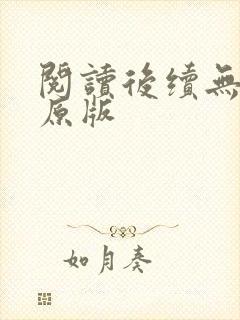 閱讀後續無
原版
如月奏